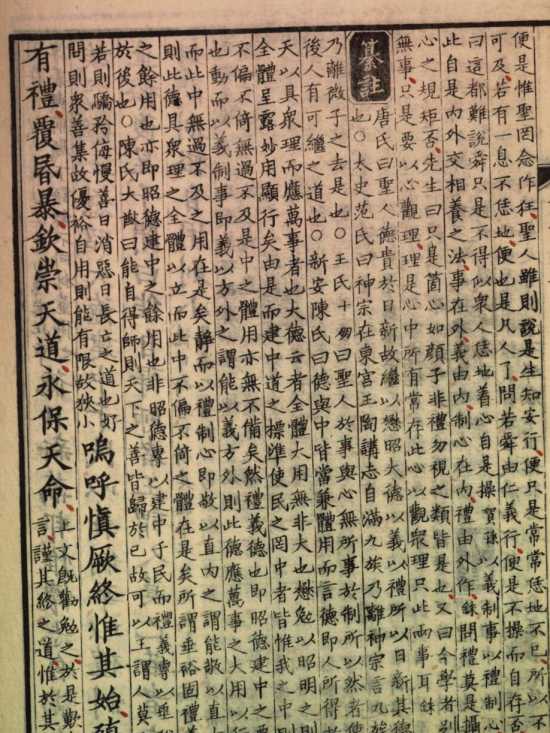 便是惟聖罔念作狂聖人雖則說是生知安行便只是常常恁地不已所以不
可及若有一息不恁地便也是凡人了問若舜由仁義行便是不操而自存否
曰這都難說舜只是不得似衆人恁地着心自是操賀孫以義制事以禮制心
此自是内外交相養之法事在外義由内制心在内禮由外作銖問禮莫是攝
心之規矩否先生曰只是箇心如顔子非禮勿視之類皆是也又曰今學者別
無事只是要以心觀理理是心中所有常存此心以觀衆理只此兩事耳銖
纂註 唐氏曰聖人德貴於日新故繼以懋昭大德以義以禮所以日新其德
也○太史范氏曰神宗在東宮王陶講志自滿九族乃離神宗言九族
乃離微子之去是也○王氏十朋曰聖人於事與心無所事於制所以然者使
後人有可繼之道也○新安陳氏曰德與中皆當兼體用而言德即人所得
天以具衆理而應萬事者也大德云者全體大用無非大也懋勉以昭明之則
全體呈露妙用顯行矣由是而建中道之標準使民之罔中者皆惟我之中
不偏不倚無過不及是中之體用亦無不備矣然禮義德也即昭德建中之要
也動而以義制事即義以方外之謂能以義方外則此德應萬事之大用以行
而此中無過不及之用在是矣靜而以禮制心即敬以直内之謂能敬以直
則此德具衆理之全體以立而此中不偏不倚之體在是矣所謂垂裕固禮義
之餘用也亦即昭德建中之餘用也非昭德專以建中于民而禮義專以垂
於後也○陳氏大猷曰能自得師則天下之善皆歸於已故可以王謂人莫
若則驕矜侮慢善日消惡日長亡之道也好
問則衆善集故優裕自用則能有限故狹小
嗚呼慎厥終惟其始殖
有禮覆昏暴欽崇天道永保天命
上文既勸勉之於是歎
言謹其終之道惟於其